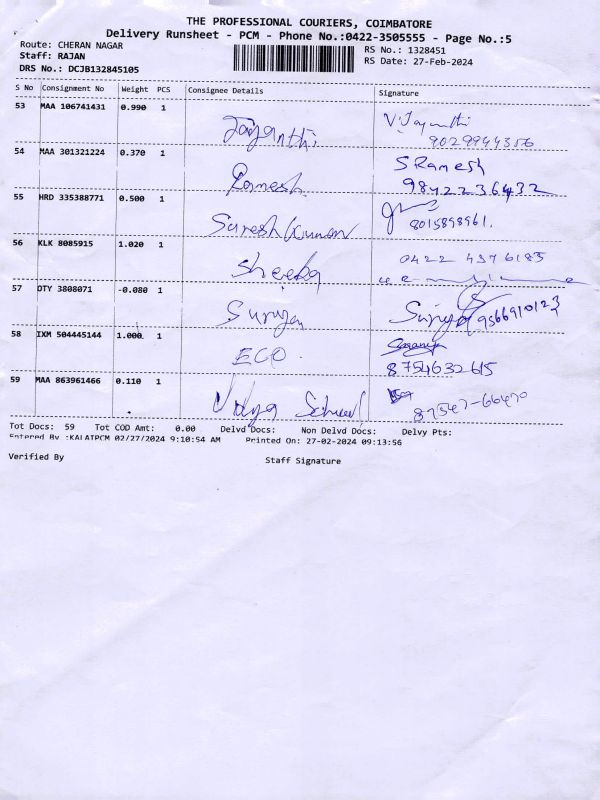 THE PROFESSIONAL COURIERS, COIMBATORE
Delivery Runsheet - PCM - Phone No.:0422-3505555 - Page No.:5
Route: CHERAN NAGAR
RS No.: 1328451
Staff: RAJAN
RS Date: 27-Feb-2024
DRS No.: DCJB132845105
S No Consignment No Weight PCS Consignee Details Signature
53 MAA 106741431 0.990 1 Jayanthi V.Jayanthi
9029944356
54 MAA 301321224 0.370 1 Ramesh S Ramesh
9842236432
55 HRD 335388771 0.500 1 Suresh Kumar
8015898961.
56 KLK 8085915 1.020 1 0422 4376183
57 OTY 3808071 -0.080 1 Suriya 9566910123
58 IXM 504445144 1.000 1 ECO.
8754632615
59 MAA 863961466 0.110 1 Vidya School 87547-66470
Tot Docs: 59 Tot COD Amt: 0.00 Delvd Docs: Non Delvd Docs: Delvy Pts:
Entered By :KALAIPCM 02/27/2024 9:10:54 AM Printed On: 27-02-2024 09:13:56
Verified By Staff Signature